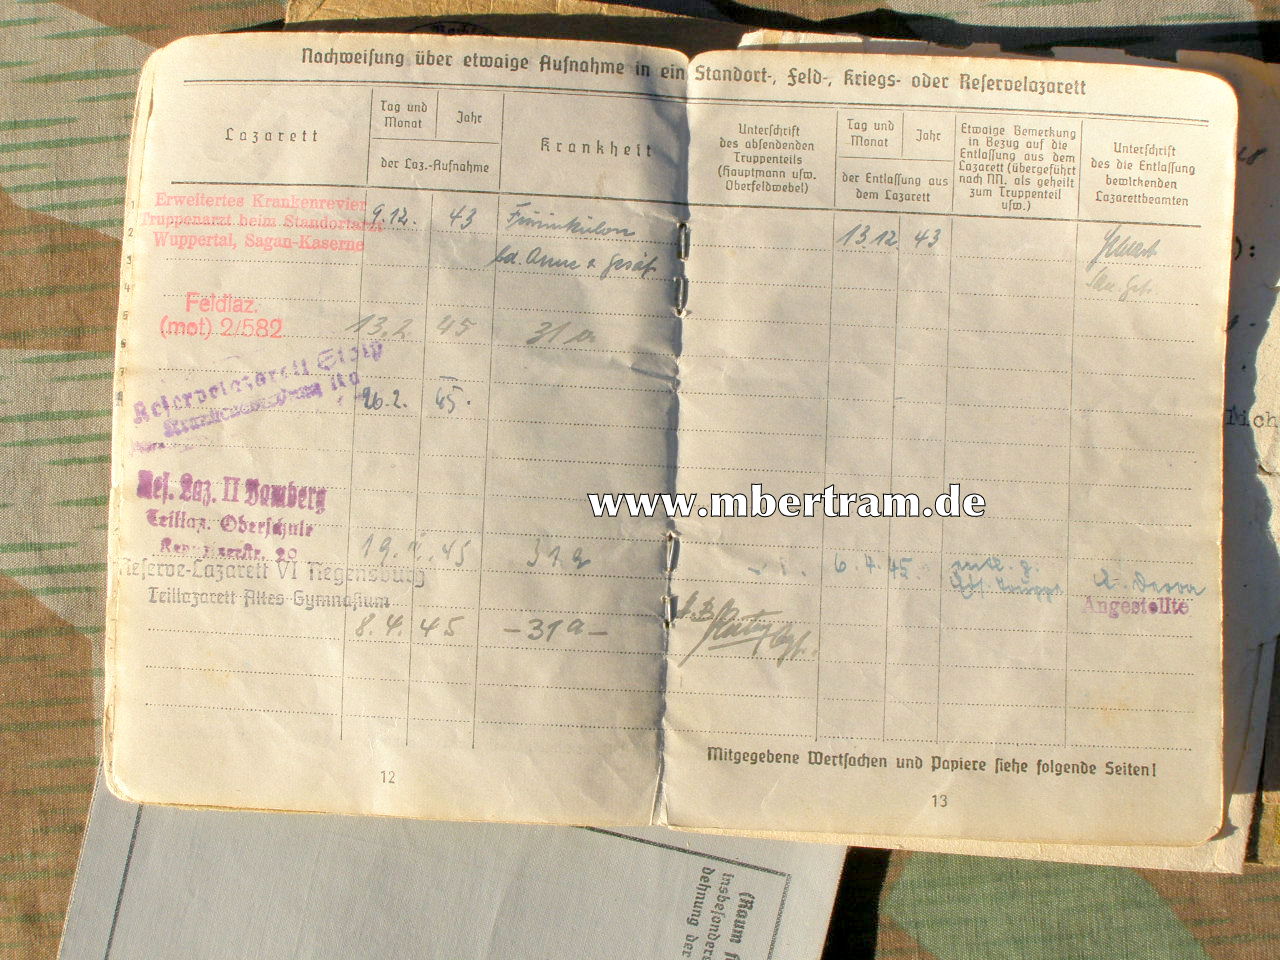 Nachweisung über etwaige Aufnahme in ein Standort-, Feld-, Kriegs- oder Reservelazarett
Lazarett
Tag und
Monat
Jahr
der Laz.-Aufnahme
Krankheit
Unterschrift
des absendenden
Truppenteils
(Hauptmann usw.
Oberfeldwebel)
Tag und
Monat
Jahr
der Entlassung aus
dem Lazarett
Etwaige Bemerkung
in Bezug auf die
Entlassung aus dem
Lazarett (übergeführt
nach NN. als geheilt
zum Truppenteil
usw.)
Unterschrift
des die Entlassung
bewirkenden
Lazarettbeamten
1
2
3
4
5
6
7
8
Erweitertes Krankenrevier
Truppenarzt beim Standortarzt
Wuppertal, Sagan-Kaserne
9.12. 43 Furunkulon
bd. Arme & Gesäß
13.12. 43
Feldlaz.
(mot) 2/582
13.2. 45 31a
Reservelazarett Stolp
26.2. 45.
Res. Laz. II Bamberg
Teillaz. Oberschule
19. 45 31a
6.4.45.
Angestellte
Reserve-Lazarett VI Regensburg
Teillazarett Altes Gymnasium
8.4. 45 -31a-
Mitgegebene Wertsachen und Papiere siehe folgende Seiten!
12
13
www.mbertram.de
(Raum
insbesonders
dehnung der